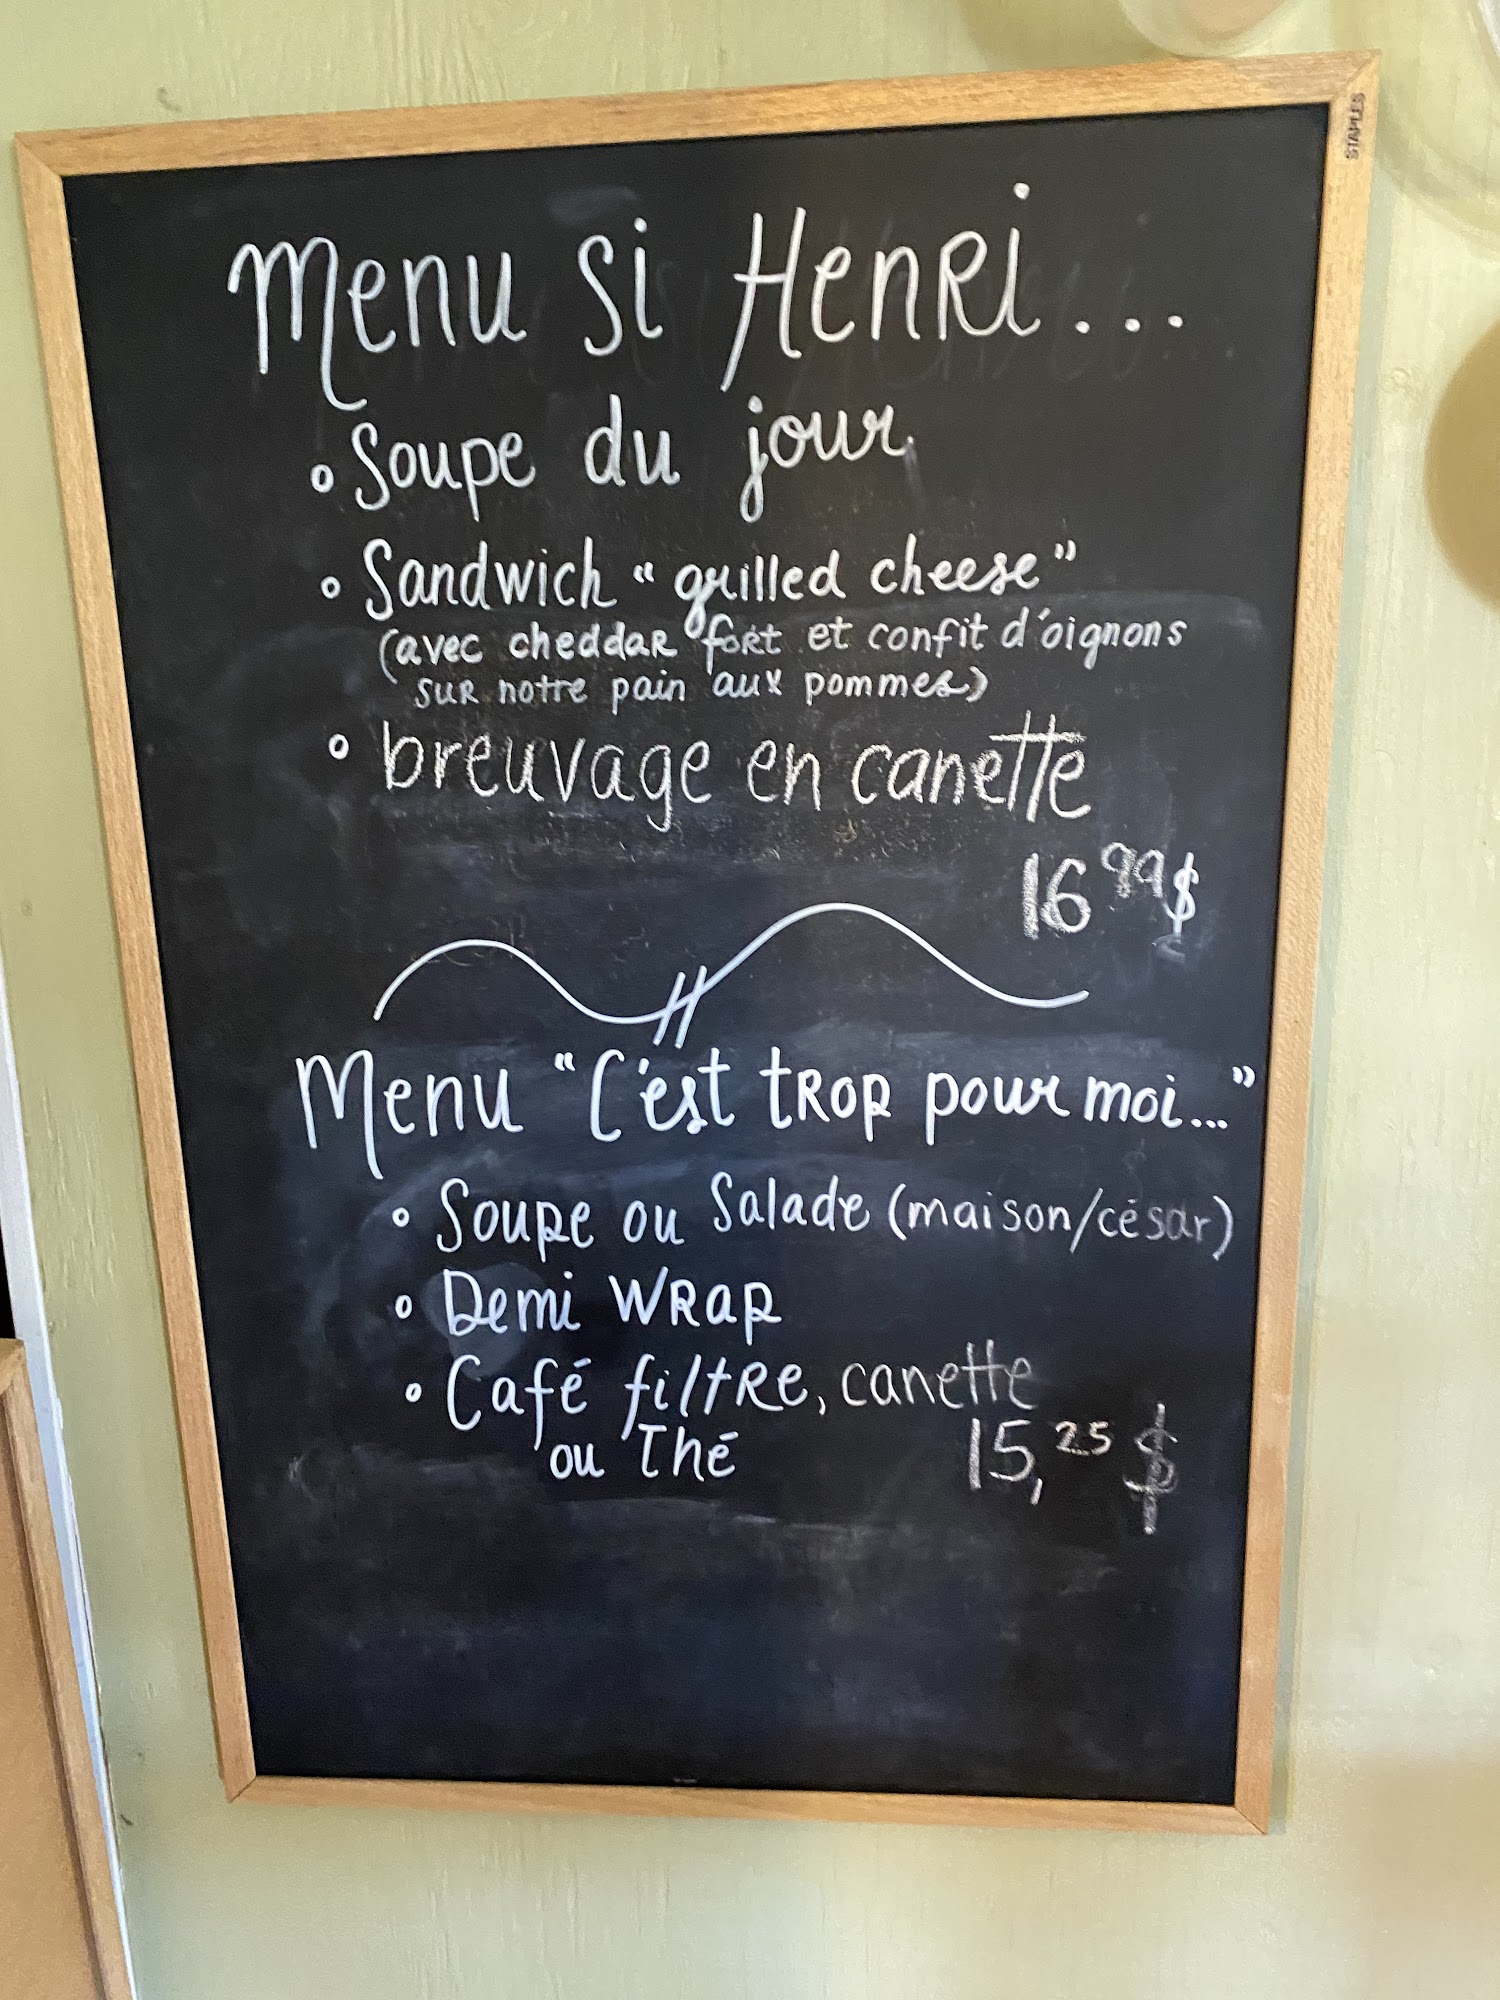 STAPLES
Menu Si HenRi...
Soupe du jour
Sandwich "grilled cheese"
(avec cheddaR fort et confit d'oignons
suR notre pain aux pommes)
breuvage en canette
16 99 $
Menu "C'est tRop pour moi..."
Soupe ou Salade (maison/césar)
Demi WRap
Café filtRe, canette
ou Thé
15, 25 $